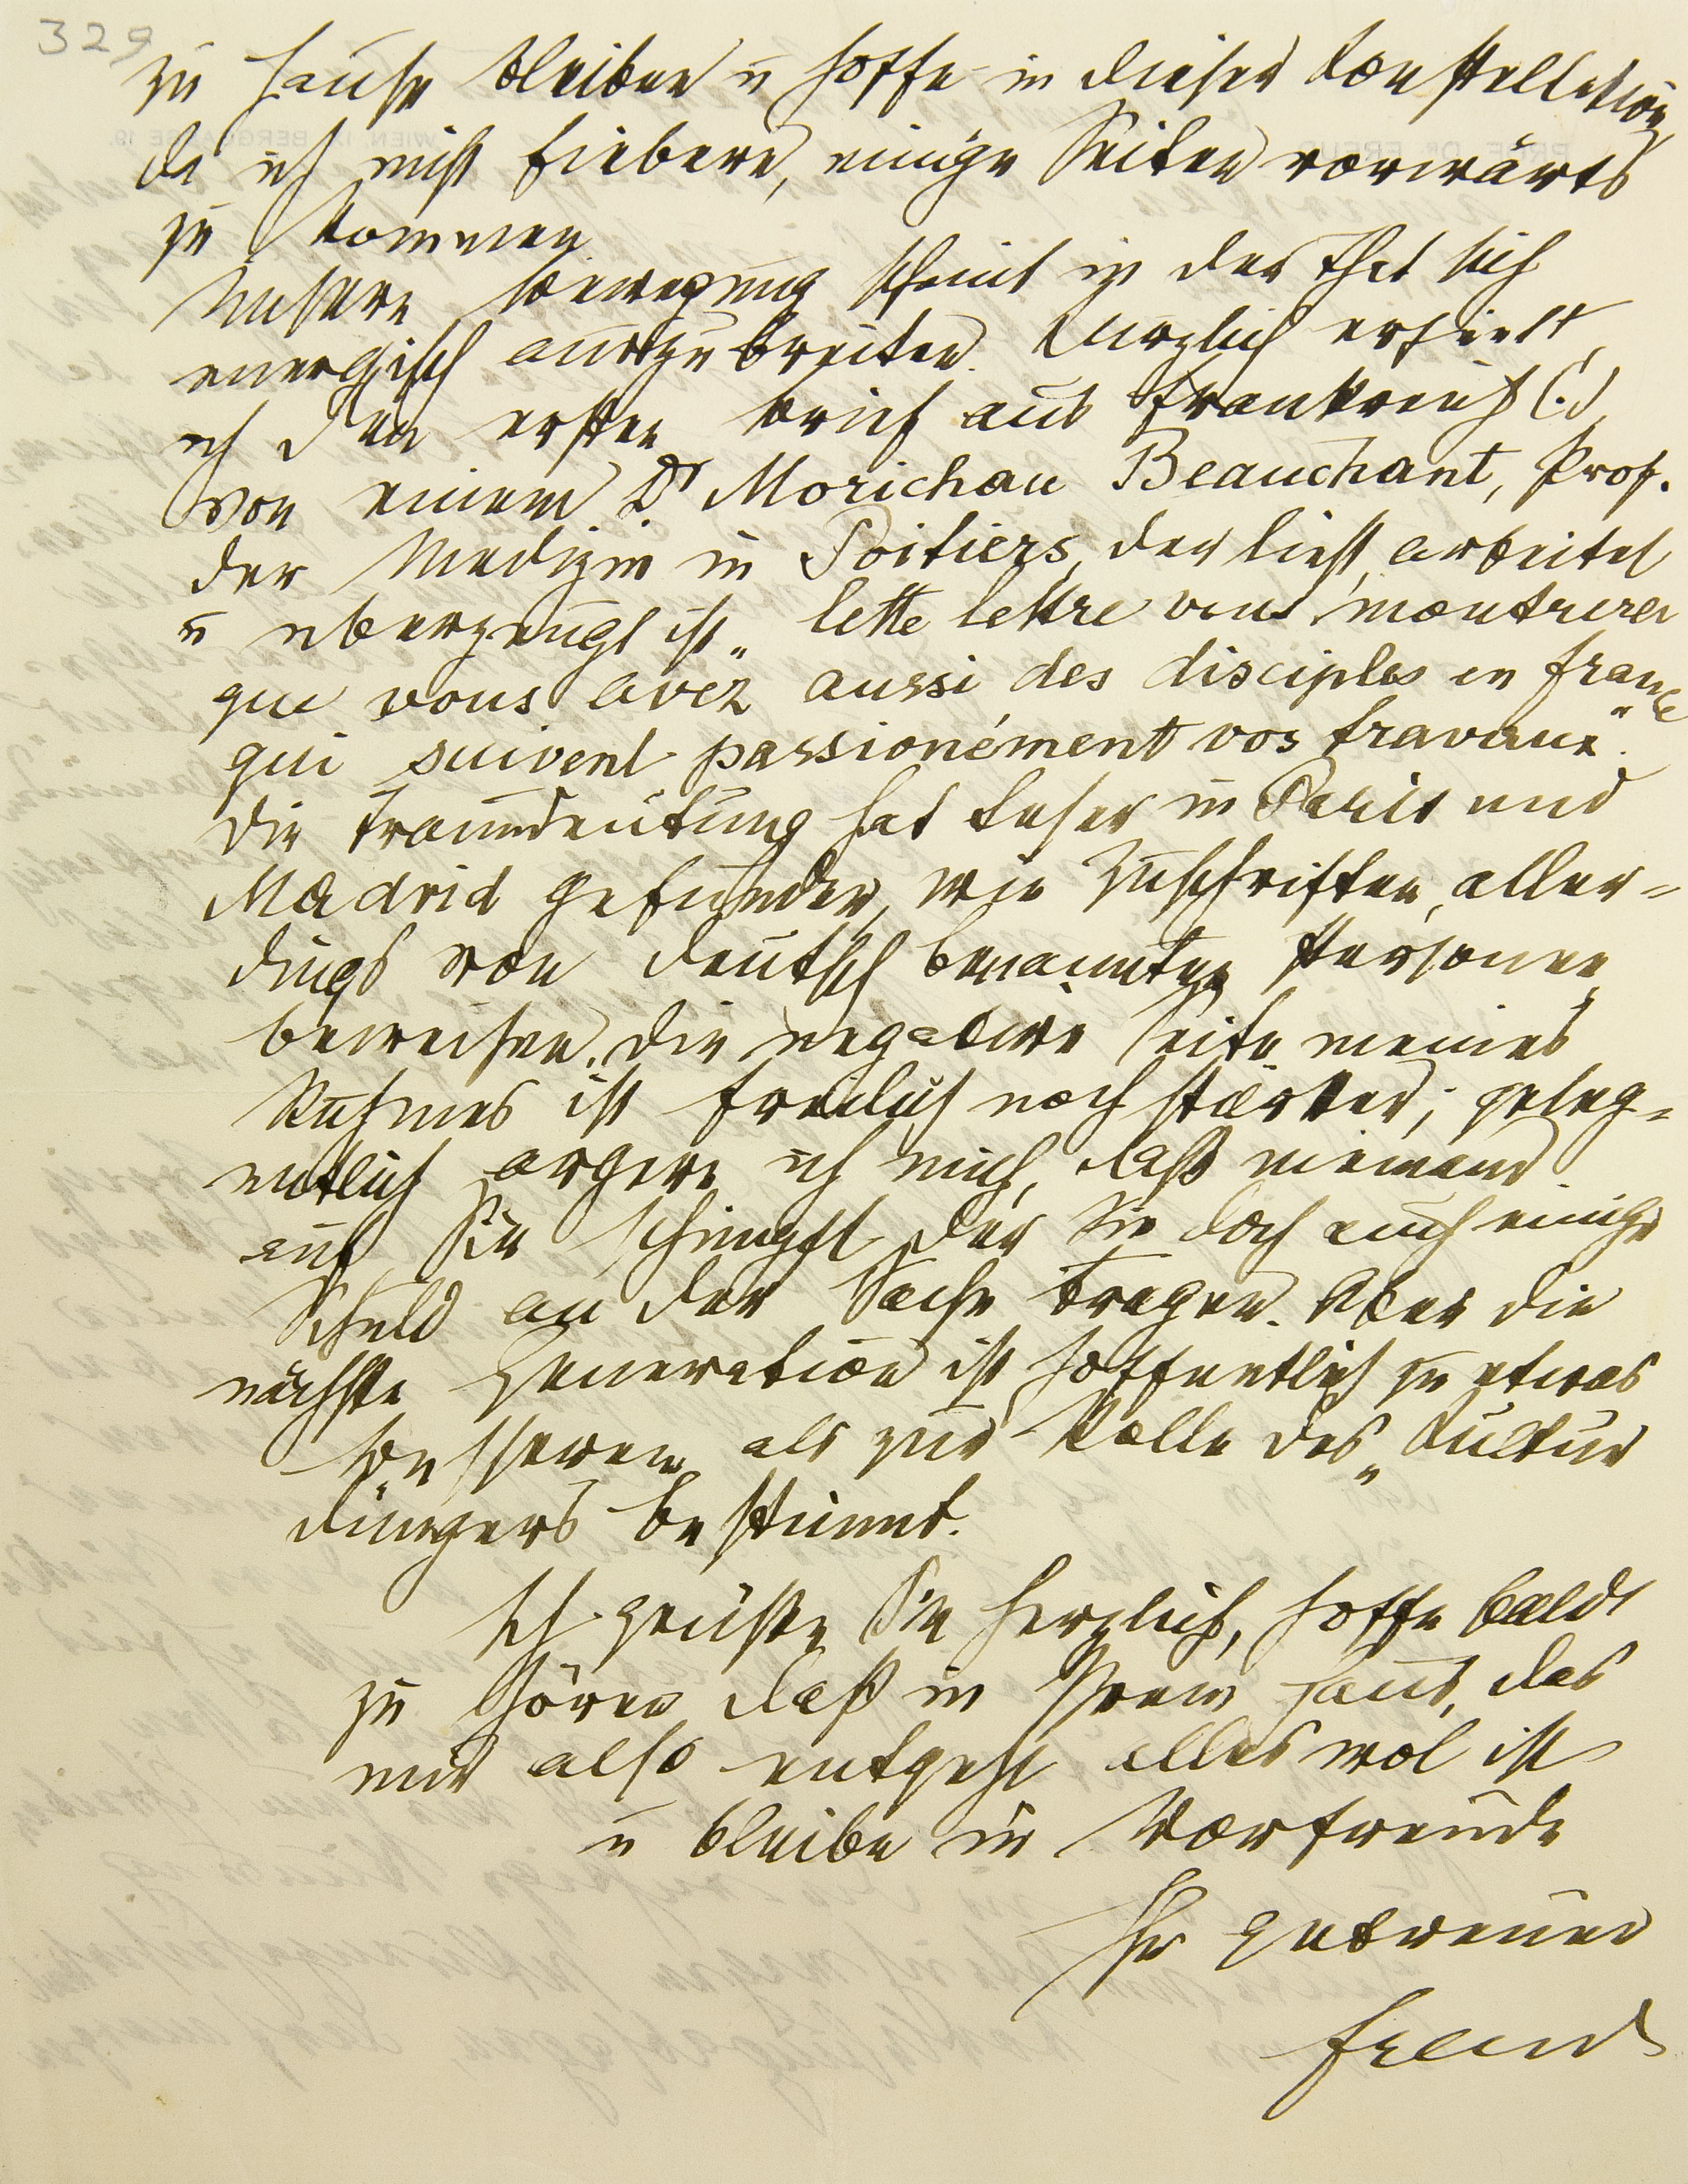 329
zu Hause bleiben u hoffe in dieser Konstellation,
da ich nicht fiebere, einige Seiten vorwärts
zu kommen.
Unsere Bewegung scheint in der That sich
energisch auszubreiten. Kürzlich erhielt
ich den ersten Brief aus Frankreich (!)
von einem Dr Morichau Beauchant, Prof.
der Medizin in Poitiers, der liest, arbeitet
u überzeugt ist „Cette lettre vous montrera
que vous avez aussi des disciples en France
qui suivent passionément vos travaux“.
Die Traumdeutung hat Leser in Paris und
Madrid gefunden, wie Zuschriften, aller-
dings von deutsch benannten Personen
beweisen. Die negative Seite meines
Ruhmes ist freilich noch stärker; geleg-
entlich ärgere ich mich, daß niemand
auf Sie schimpft, der Sie doch auch einige
Schuld an der Sache tragen. Aber die
nächste Generation ist hoffentlich zu etwas
besserem als zur Rolle des „Kultur
düngers bestimmt.
Ich grüße Sie herzlich, hoffe bald
zu hören daß in Ihrem Haus, das
mir also entgeht alles wol ist
u bleibe in Vorfreude
Ihr getreuer
Freud